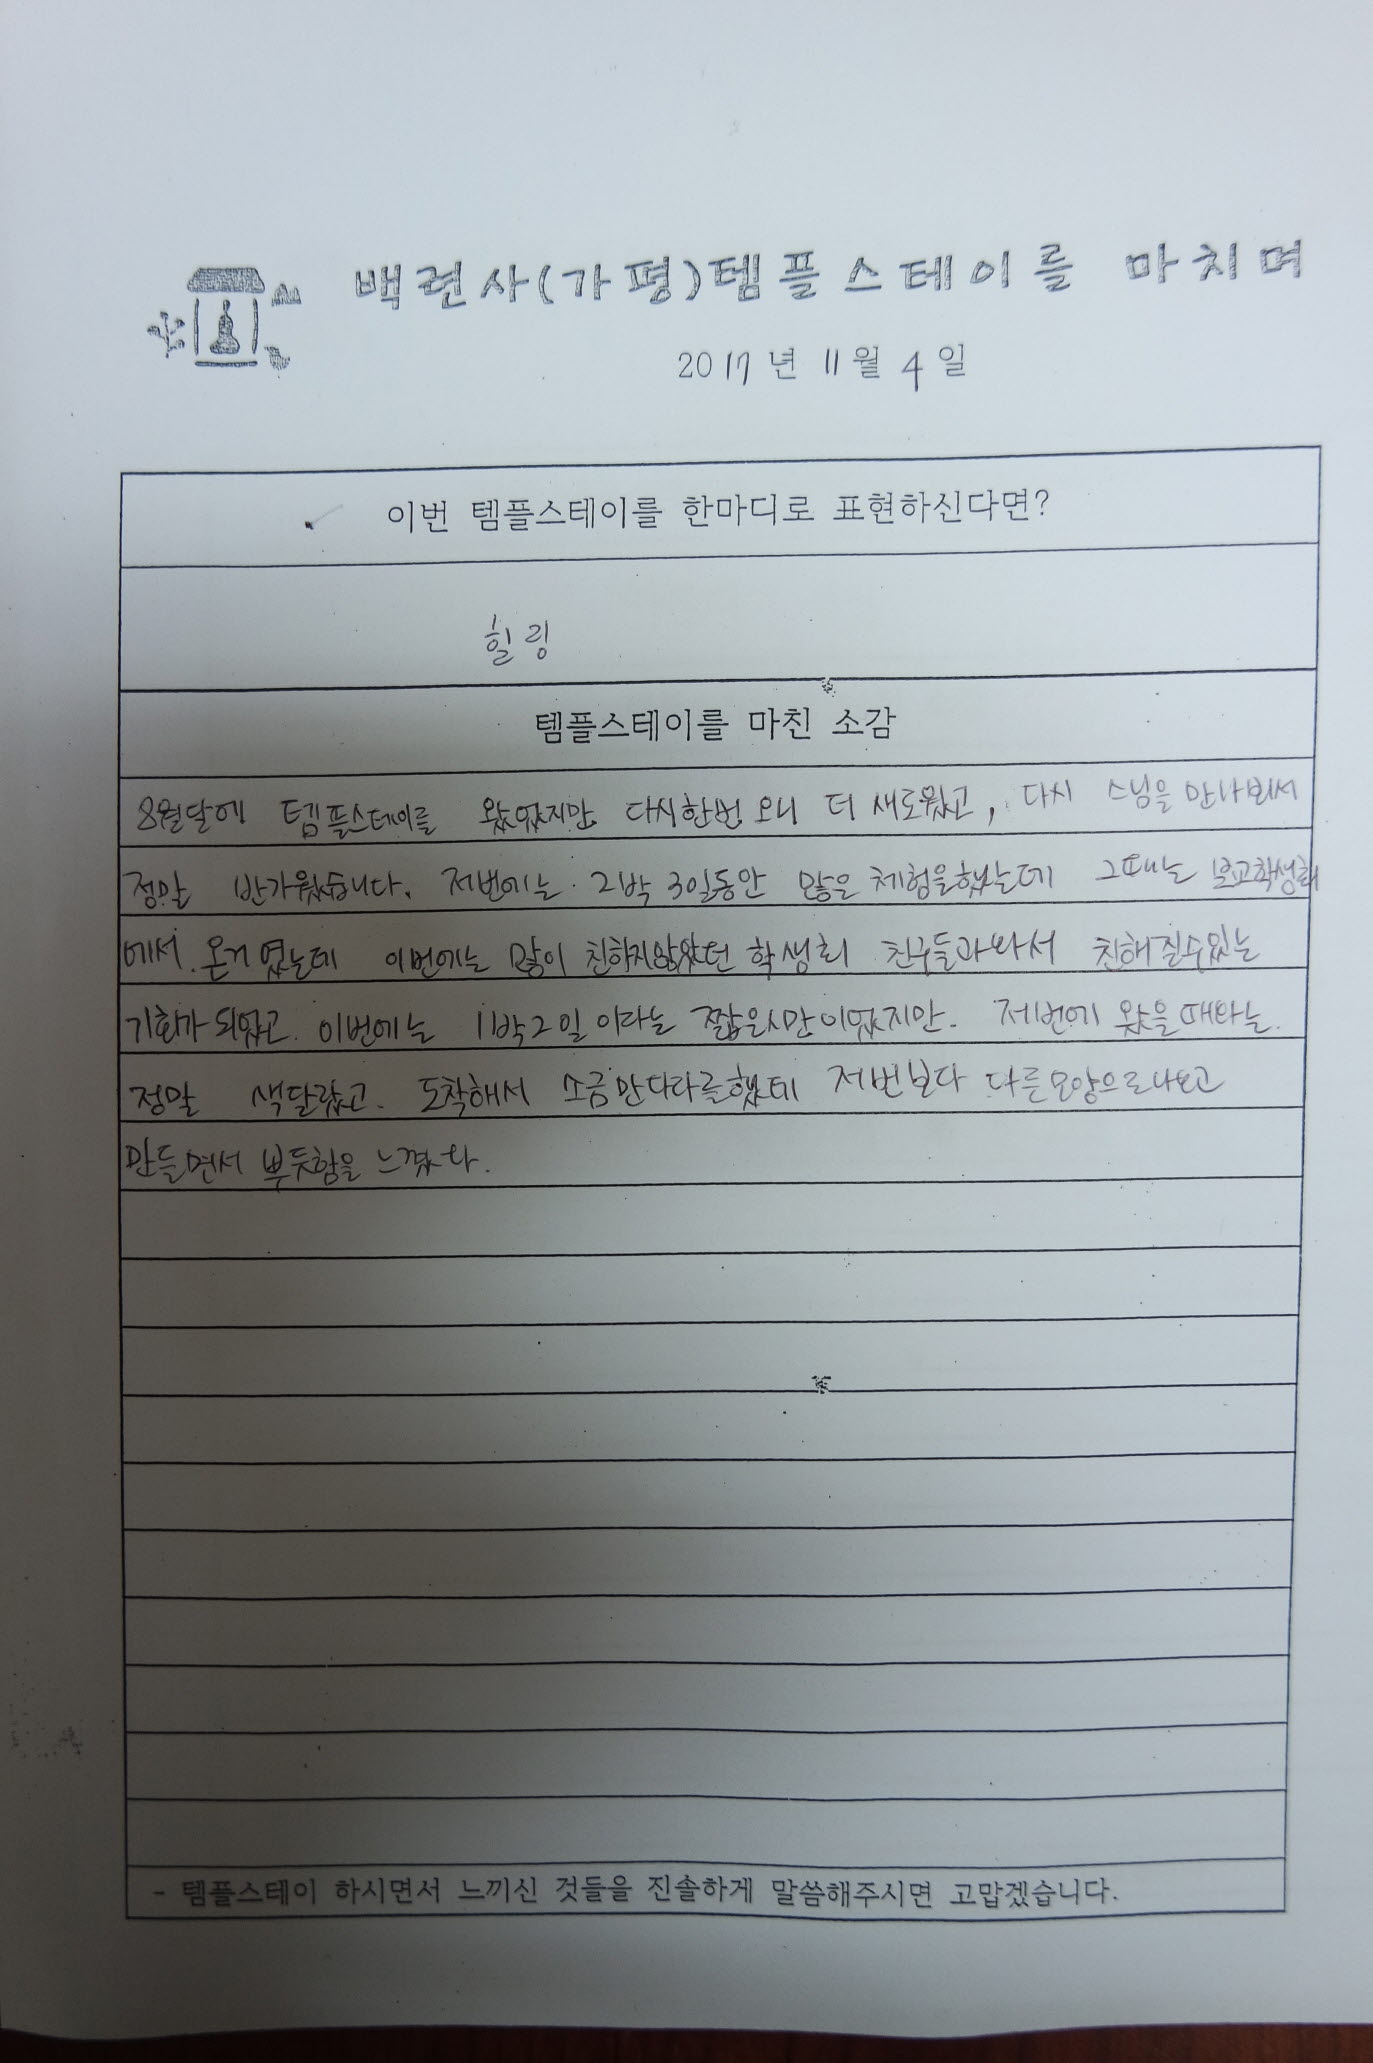 백련사(가평)템플스테이를 마치며
2017년 11월 4일
이번 템플스테이를 한마디로 표현하신다면?
힐링
템플스테이를 마친 소감
8월달에 템플스테이를 왔었지만 다시한번 오니 더 새로웠고, 다시 스님을 만나뵈서
정말 반가웠습니다. 저번에는 2박 3일동안 많은 체험을했는데 그때는
에서 온거 였는데 이번에는 많이 친하지않았던 학생회 친구들과와서 친해질수있는
기회가 되었고 이번에는 1박2일 이라는 짧은시간이였지만 저번에 왔을때와는
정말 색달랐고 도착해서 소금만다라를했는데 저번보다 다른모양으로나오고
만들면서 뿌듯함을 느꼈다.
- 템플스테이 하시면서 느끼신 것들을 진솔하게 말씀해주시면 고맙겠습니다.